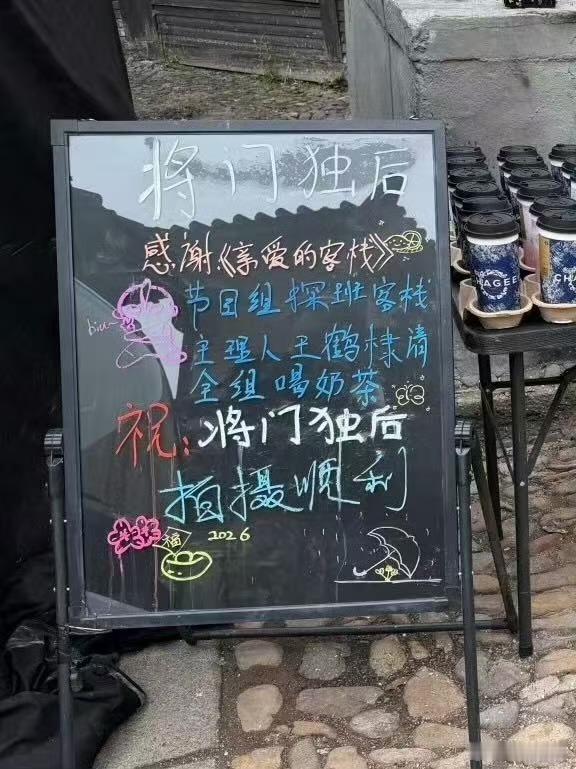 将门独后
感谢《亲爱的客栈》
节目组探班客栈
biu~
主理人王鹤棣请
全组喝奶茶
祝：将门独后
拍摄顺利
福
2026
CHAGEE
CHAGEE